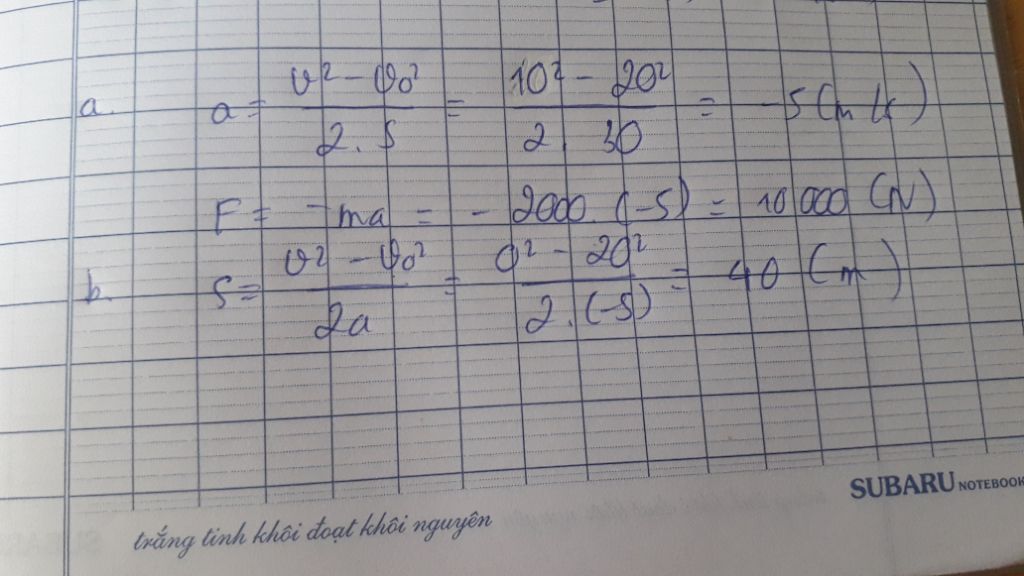 a. a = v² - v₀² / 2.S = 10² - 20² / 2.30 = -5 (m/s)
F = -ma = - 2000.(-5) = 10 000 (N)
b. S = v² - v₀² / 2a = 0² - 20² / 2.(-5) = 40 (m)
SUBARU NOTEBOOK
trắng tinh khôi đoạt khôi nguyên